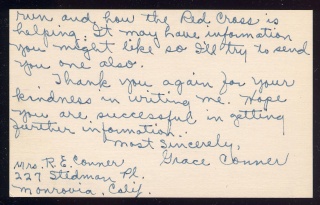 run and how the Red Cross is
helping. It may have information
you might like so I'll try to send
you one also.
Thank you again for your
kindness in writing me. Hope
you are successful in getting
further information.
Most Sincerely,
Grace Conner
Mrs. R. E. Conner
227 Stedman Pl.
Monrovia, Calif.